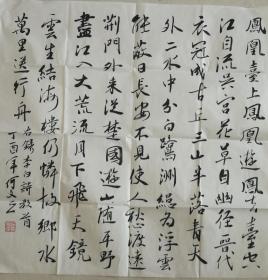 鳳凰臺上鳳凰遊鳳去臺空
江自流吳宮花草埋幽徑晉代
衣冠成古丘三山半落青天
外二水中分白鷺洲總為浮雲
能蔽日長安不見使人愁渡遠
荊門外來從楚國遊山隨平野
盡江入大荒流月下飛天鏡
雲生結海樓仍憐故鄉水
萬里送行舟
右錄李白詩首
丁酉年